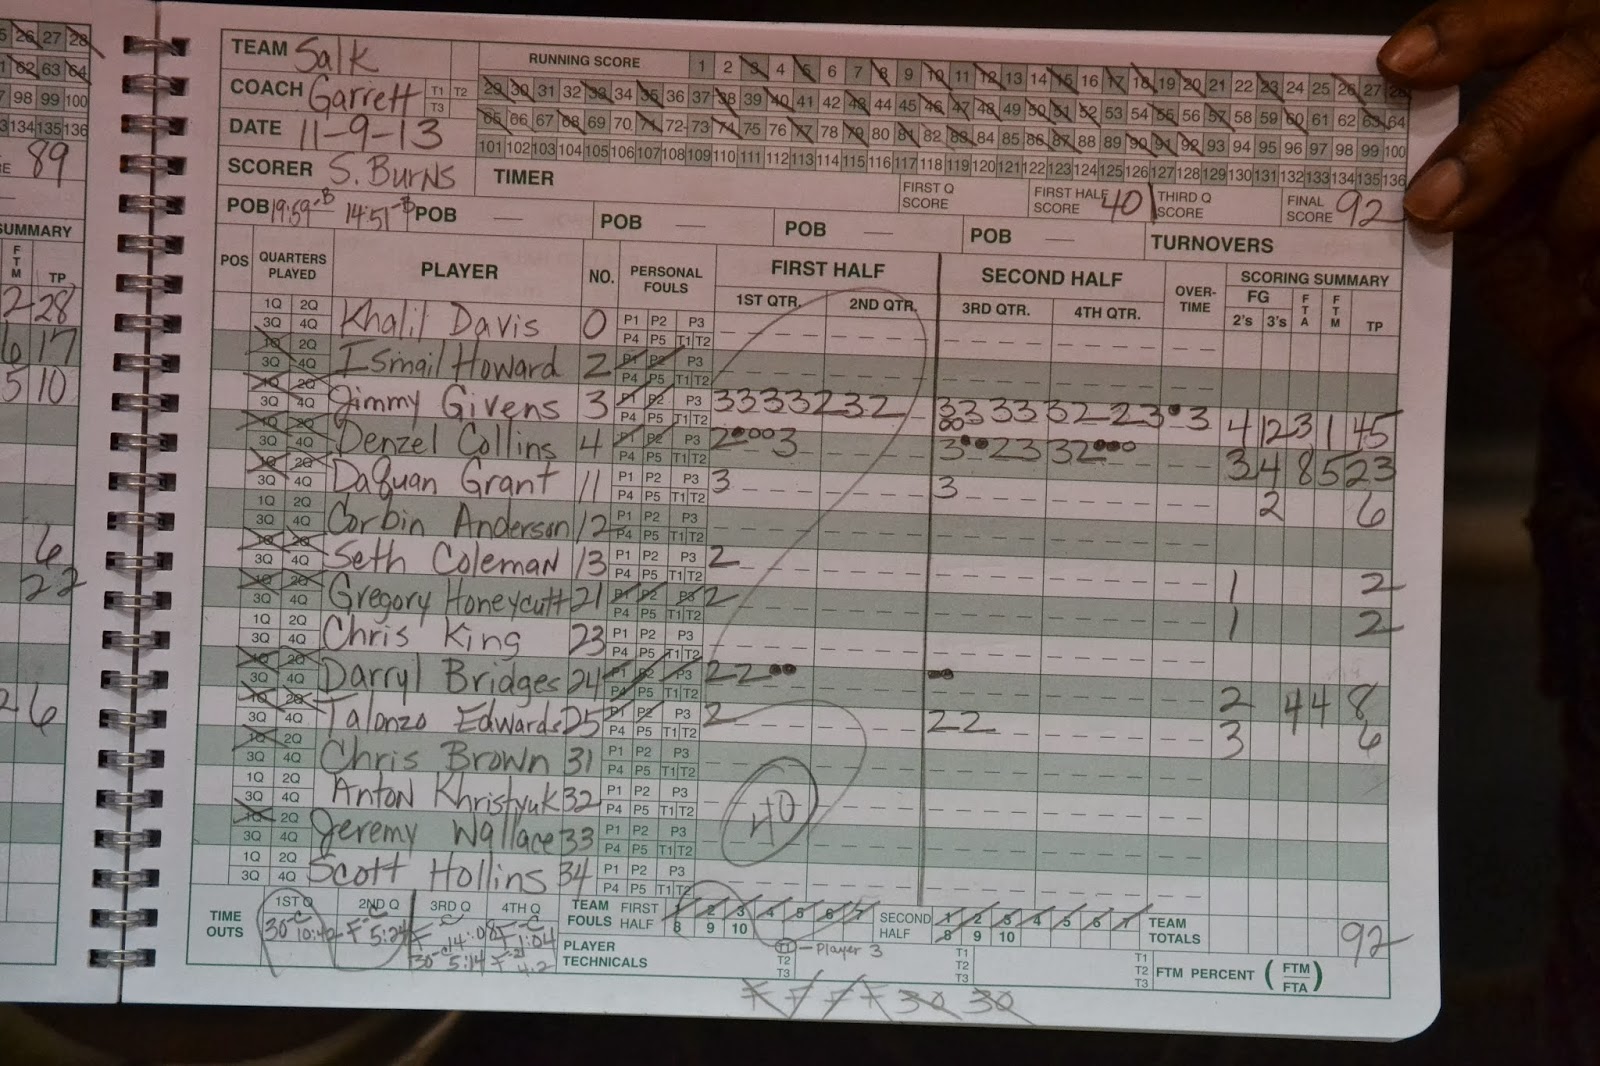 TEAM Salk RUNNING SCORE 1 2 3 4 5 6 7 8 9 10 11 12 13 14 15 16 17 18 19 20 21 22 23 24 25 26 27 28
COACH Garrett T1 T2 T3 29 30 31 32 33 34 35 36 37 38 39 40 41 42 43 44 45 46 47 48 49 50 51 52 53 54 55 56 57 58 59 60 61 62 63 64
DATE 11-9-13 65 66 67 68 69 70 71 72 73 74 75 76 77 78 79 80 81 82 83 84 85 86 87 88 89 90 91 92 93 94 95 96 97 98 99 100
101 102 103 104 105 106 107 108 109 110 111 112 113 114 115 116 117 118 119 120 121 122 123 124 125 126 127 128 129 130 131 132 133 134 135 136
SCORER S. Burns TIMER FIRST Q SCORE FIRST HALF SCORE 40 THIRD Q SCORE FINAL SCORE 92
POB 19:59-B 14:51-B POB — POB — POB — POB — TURNOVERS
POS QUARTERS PLAYED PLAYER NO. PERSONAL FOULS FIRST HALF SECOND HALF OVER-TIME SCORING SUMMARY
1ST QTR. 2ND QTR. 3RD QTR. 4TH QTR. FG 2's 3's FTA FTM TP
1Q 2Q 3Q 4Q Khalil Davis 0 P1 P2 P3 P4 P5 T1 T2
1Q 2Q 3Q 4Q Ismail Howard 2 P1 P2 P3 P4 P5 T1 T2
1Q 2Q 3Q 4Q Jimmy Givens 3 P1 P2 P3 P4 P5 T1 T2 3333232 4 12 3 1 45
1Q 2Q 3Q 4Q Denzel Collins 4 P1 P2 P3 P4 P5 T1 T2 3 4 8 5 23
1Q 2Q 3Q 4Q DaQuan Grant 11 P1 P2 P3 P4 P5 T1 T2 3 3 2 6
1Q 2Q 3Q 4Q Corbin Anderson 12 P1 P2 P3 P4 P5 T1 T2
1Q 2Q 3Q 4Q Seth Coleman 13 P1 P2 P3 P4 P5 T1 T2 2 1 2
1Q 2Q 3Q 4Q Gregory Honeycutt 21 P1 P2 P3 P4 P5 T1 T2 2 1 2
1Q 2Q 3Q 4Q Chris King 23 P1 P2 P3 P4 P5 T1 T2
1Q 2Q 3Q 4Q Darryl Bridges 24 P1 P2 P3 P4 P5 T1 T2 22 2 4 4 8
1Q 2Q 3Q 4Q Talonzo Edwards 25 P1 P2 P3 P4 P5 T1 T2 2 22 3 6
1Q 2Q 3Q 4Q Chris Brown 31 P1 P2 P3 P4 P5 T1 T2
1Q 2Q 3Q 4Q Anton Khristyuk 32 P1 P2 P3 P4 P5 T1 T2 40
1Q 2Q 3Q 4Q Jeremy Wallace 33 P1 P2 P3 P4 P5 T1 T2
1Q 2Q 3Q 4Q Scott Hollins 34 P1 P2 P3 P4 P5 T1 T2
TIME OUTS 1ST Q 2ND Q 3RD Q 4TH Q TEAM FOULS FIRST HALF 1 2 3 4 5 6 7 8 9 10 SECOND HALF 1 2 3 4 5 6 7 8 9 10 TEAM TOTALS 92
PLAYER TECHNICALS T1 T2 T3 - Player 3 T1 T2 T3 T1 T2 T3 FTM PERCENT (FTM/FTA)
F F F F 30 30
26 27 28
62 63 64
97 98 99 100
133 134 135 136
89
SUMMARY
FTM TP
2 28
6 17
5 10
6
22
26